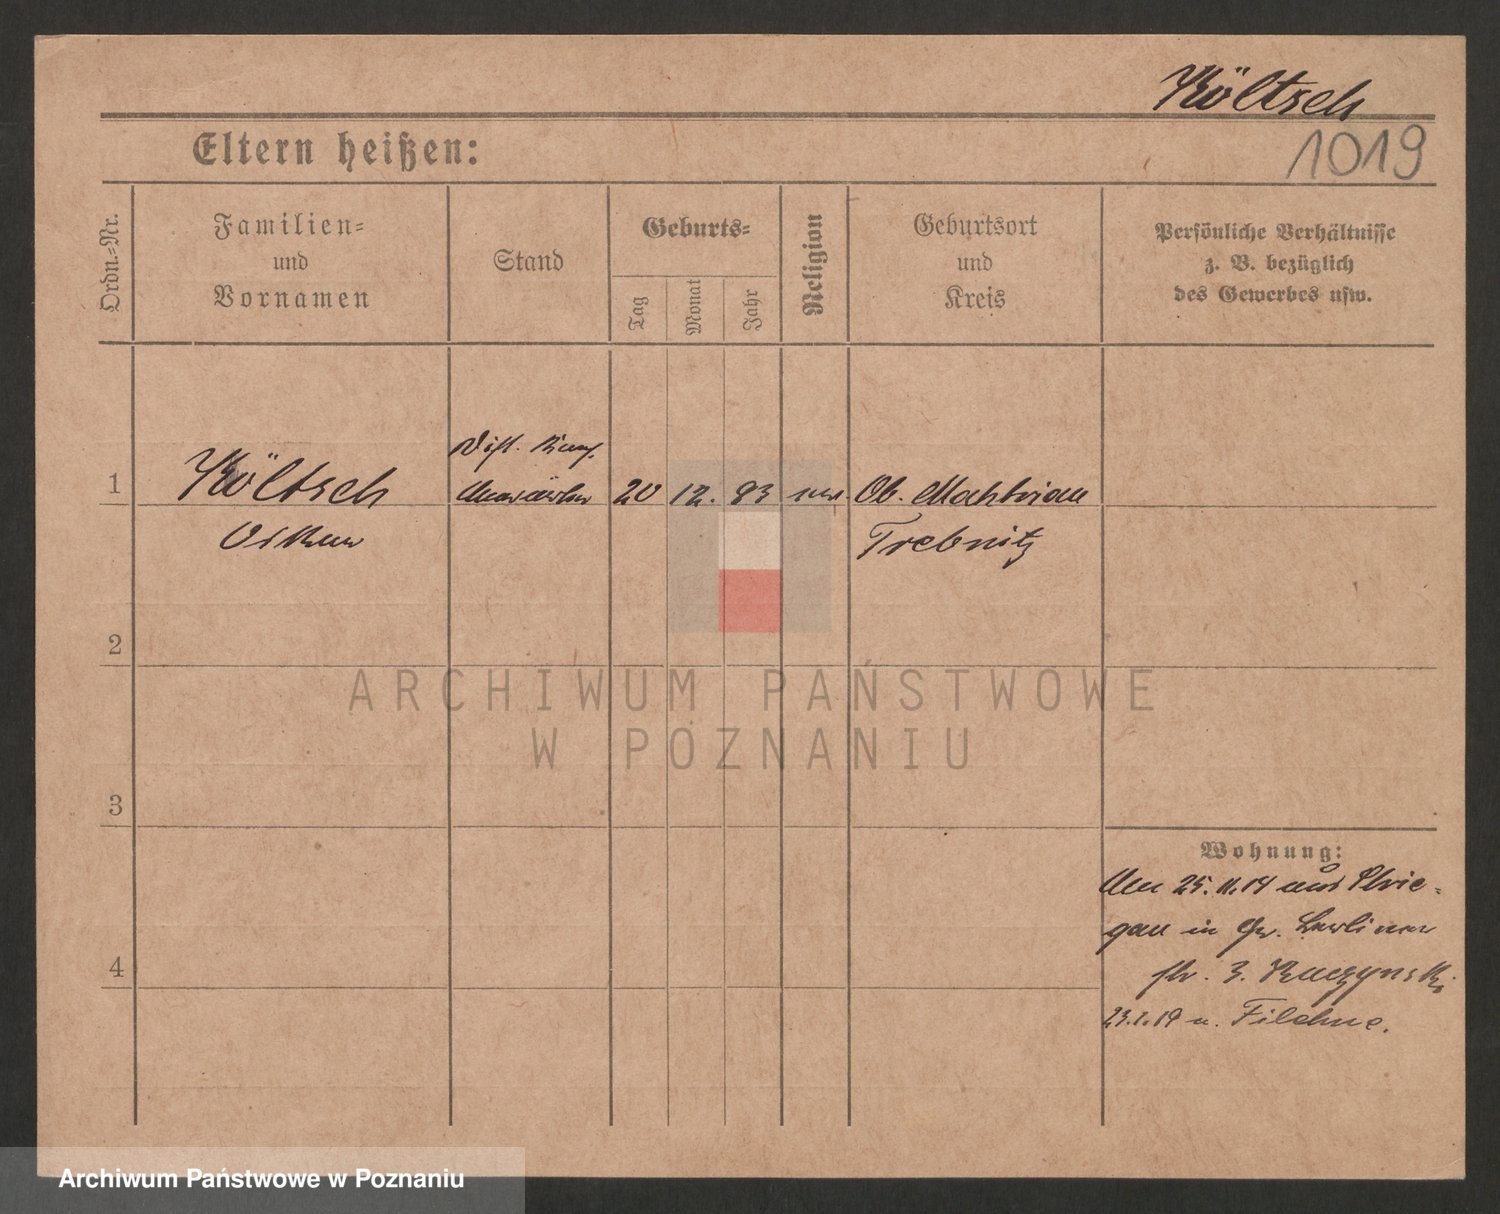 Költsch
1019
Eltern heißen:
Ordn.-Nr.
Familien-
und
Vornamen
Stand
Geburts-
Tag
Monat
Jahr
Religion
Geburtsort
und
Kreis
Persönliche Verhältnisse
z. B. bezüglich
des Gewerbes usw.
1
Költsch
Dist.
Anwärter
20
12.
83
Ob.
Oskar
Trebnitz
2
ARCHIWUM PAŃSTWOWE
W POZNANIU
3
Wohnung:
25. 11. 14 aus
in Gr. Berliner
str. 3.
4
Filehne.
Archiwum Państwowe w Poznaniu